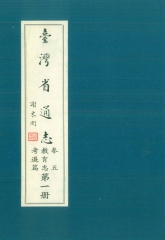 臺灣省通志
卷五
教育志
考選篇
第一冊
謝東閔